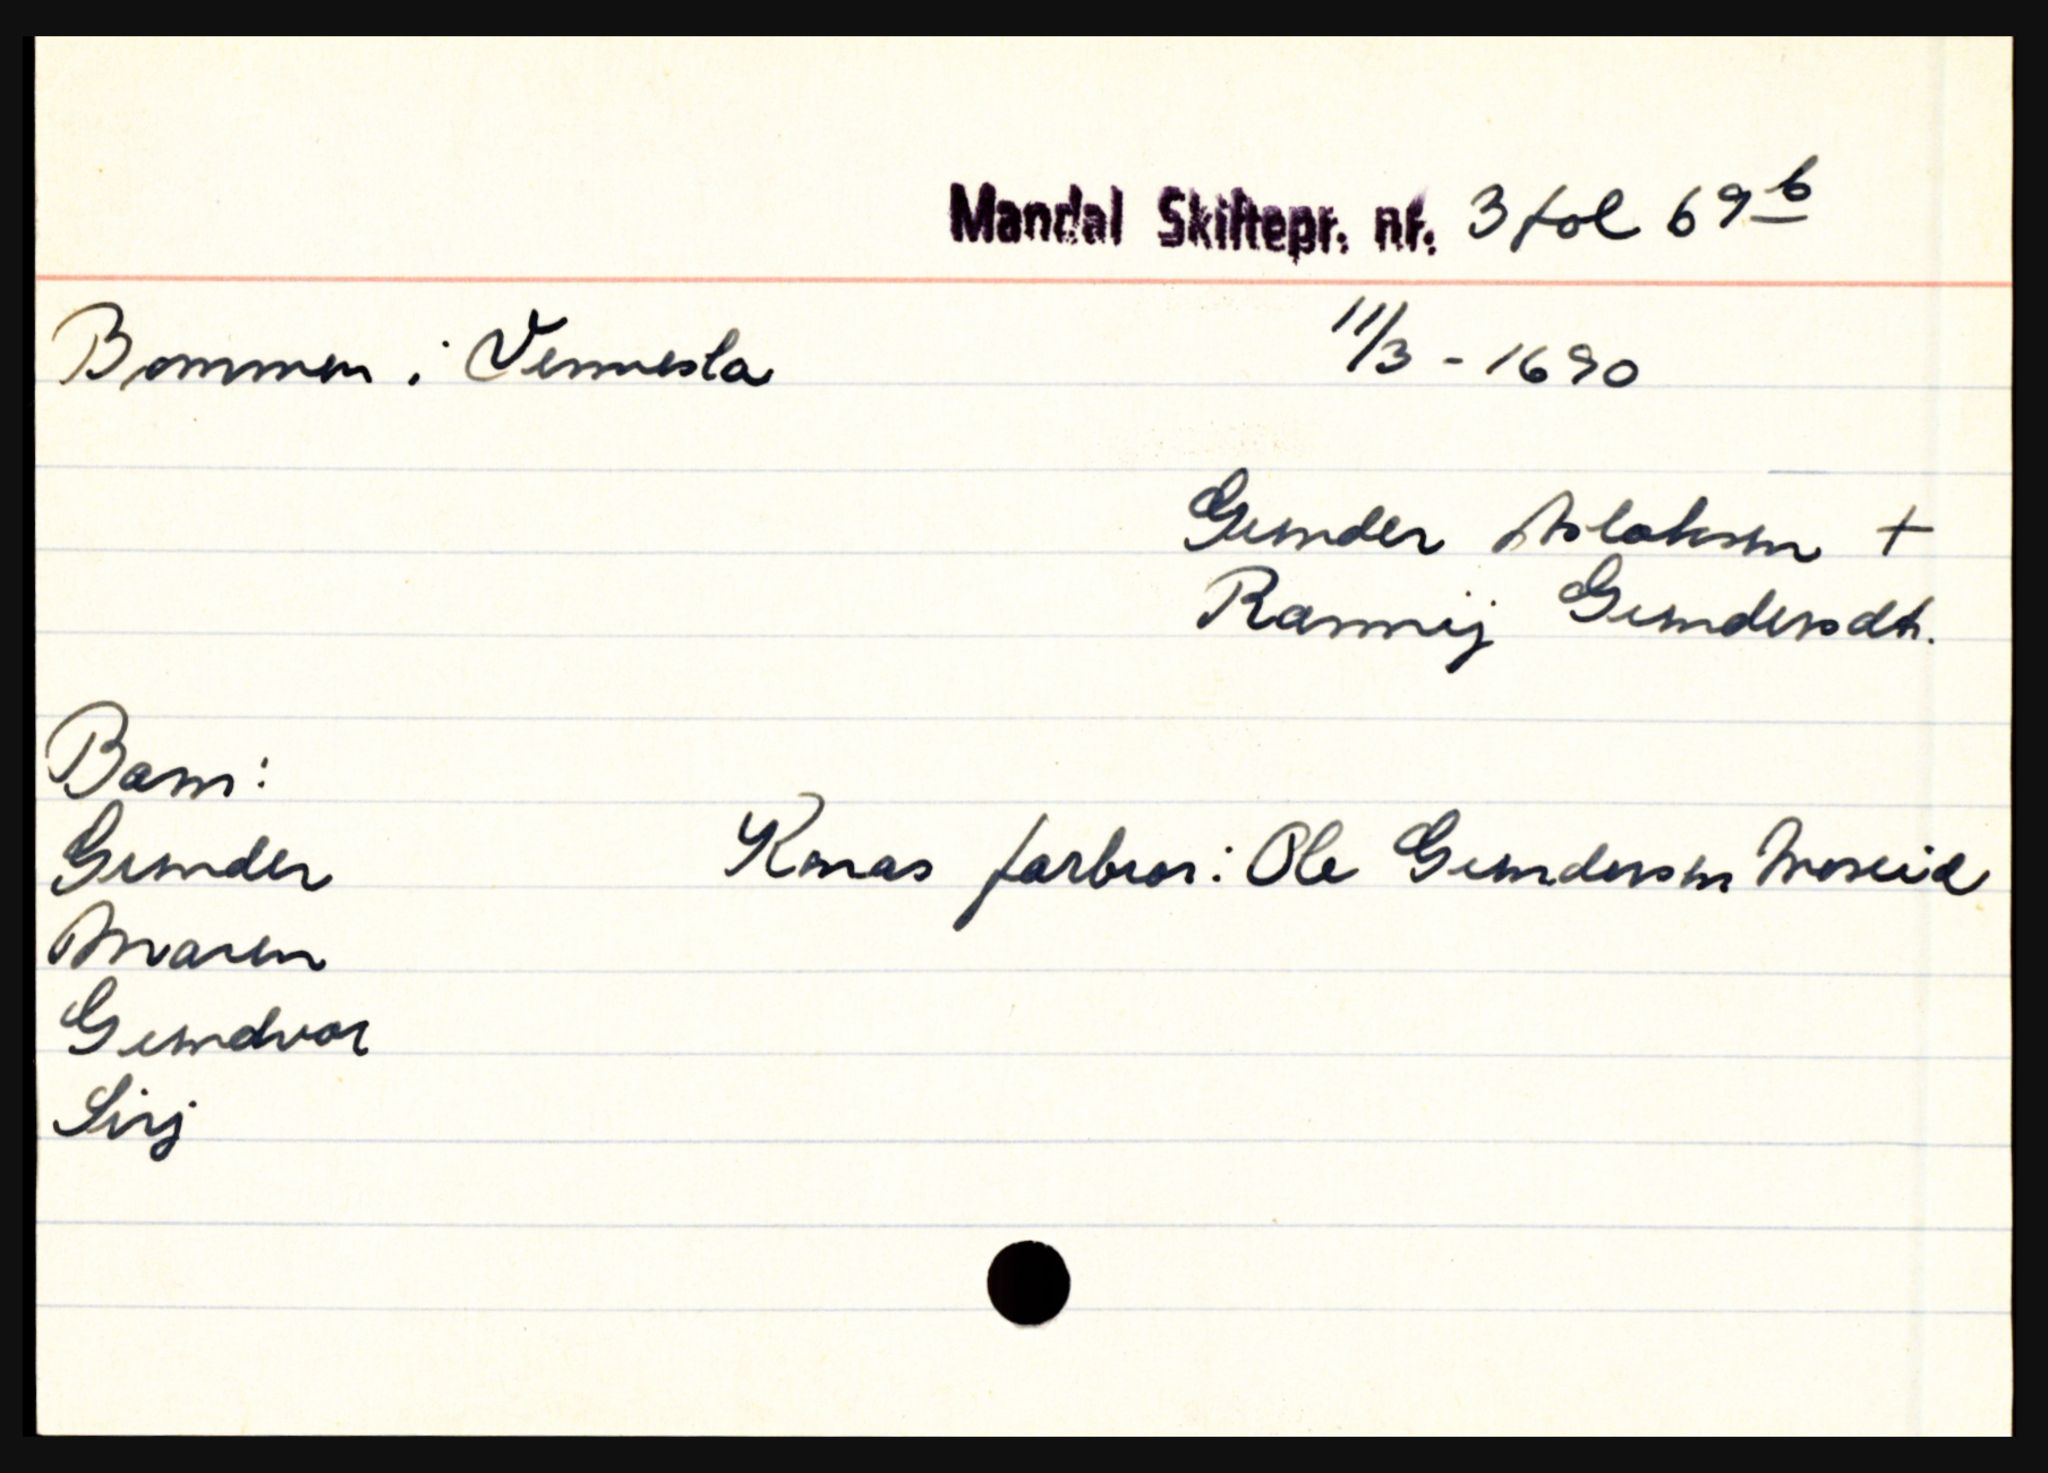 Mandal Skiftepr. nr. 3 fol 69b
Bommen i Vennesla 11/3 - 1690
Gunder Aslaksen +
Rannij Gundersdtr.
Barn:
Gunder Konas farbror: Ole Gundersen Moseid
Maren
Gundvor
Sirj